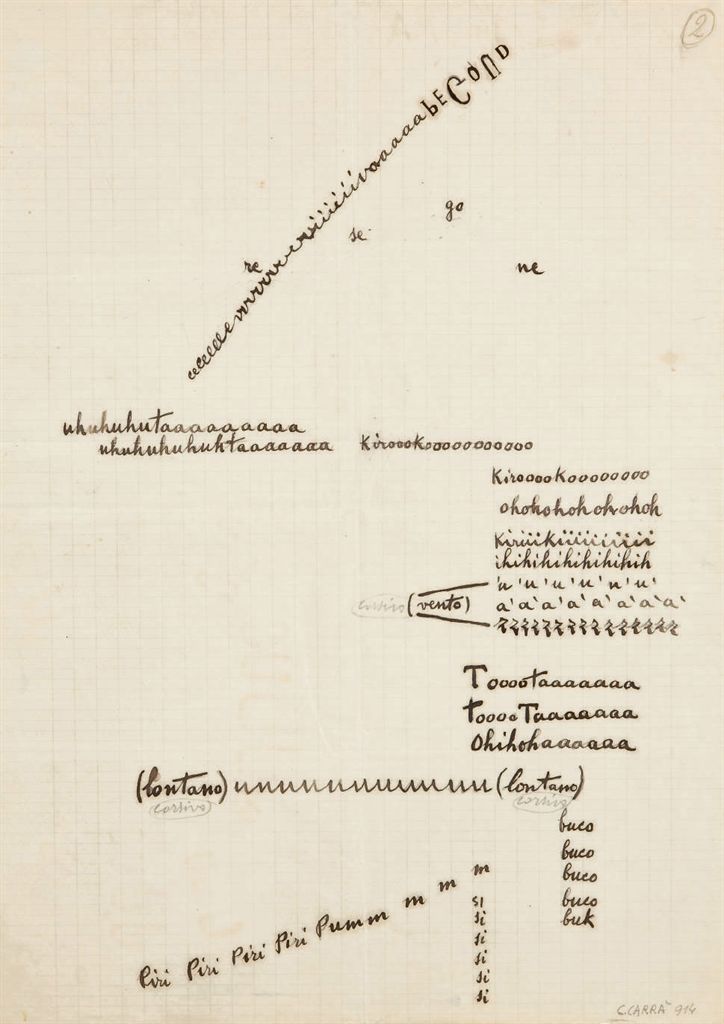 2
eeeeeeeevrrrrrrrerersiiiiiiivaaaaaabECOND
re
se
go
ne
uhuhuhutaaaaaaaaa
uhuhuhuhuktaaaaaaa
KiroooKooooooooooo
KirooooKoooooooo
ohohohohohohoh
KiriiiKiiiiiiiiii
ihihihihihihihih
'u 'u 'u 'u 'u 'u'
a' a' a' a' a' a' a' a'
corsivo (vento)
zzzzzzzzzzzzzzzz
Tooootaaaaaaaa
tooooTaaaaaaa
Ohihohaaaaaa
(lontano) uuuuuuuuuuuu (lontano)
corsivo corsivo
buco
buco
buco
buco
buk
Piri Piri Piri Piri Pummm m m m
si
si
si
si
si
si
C. CARRÀ 914